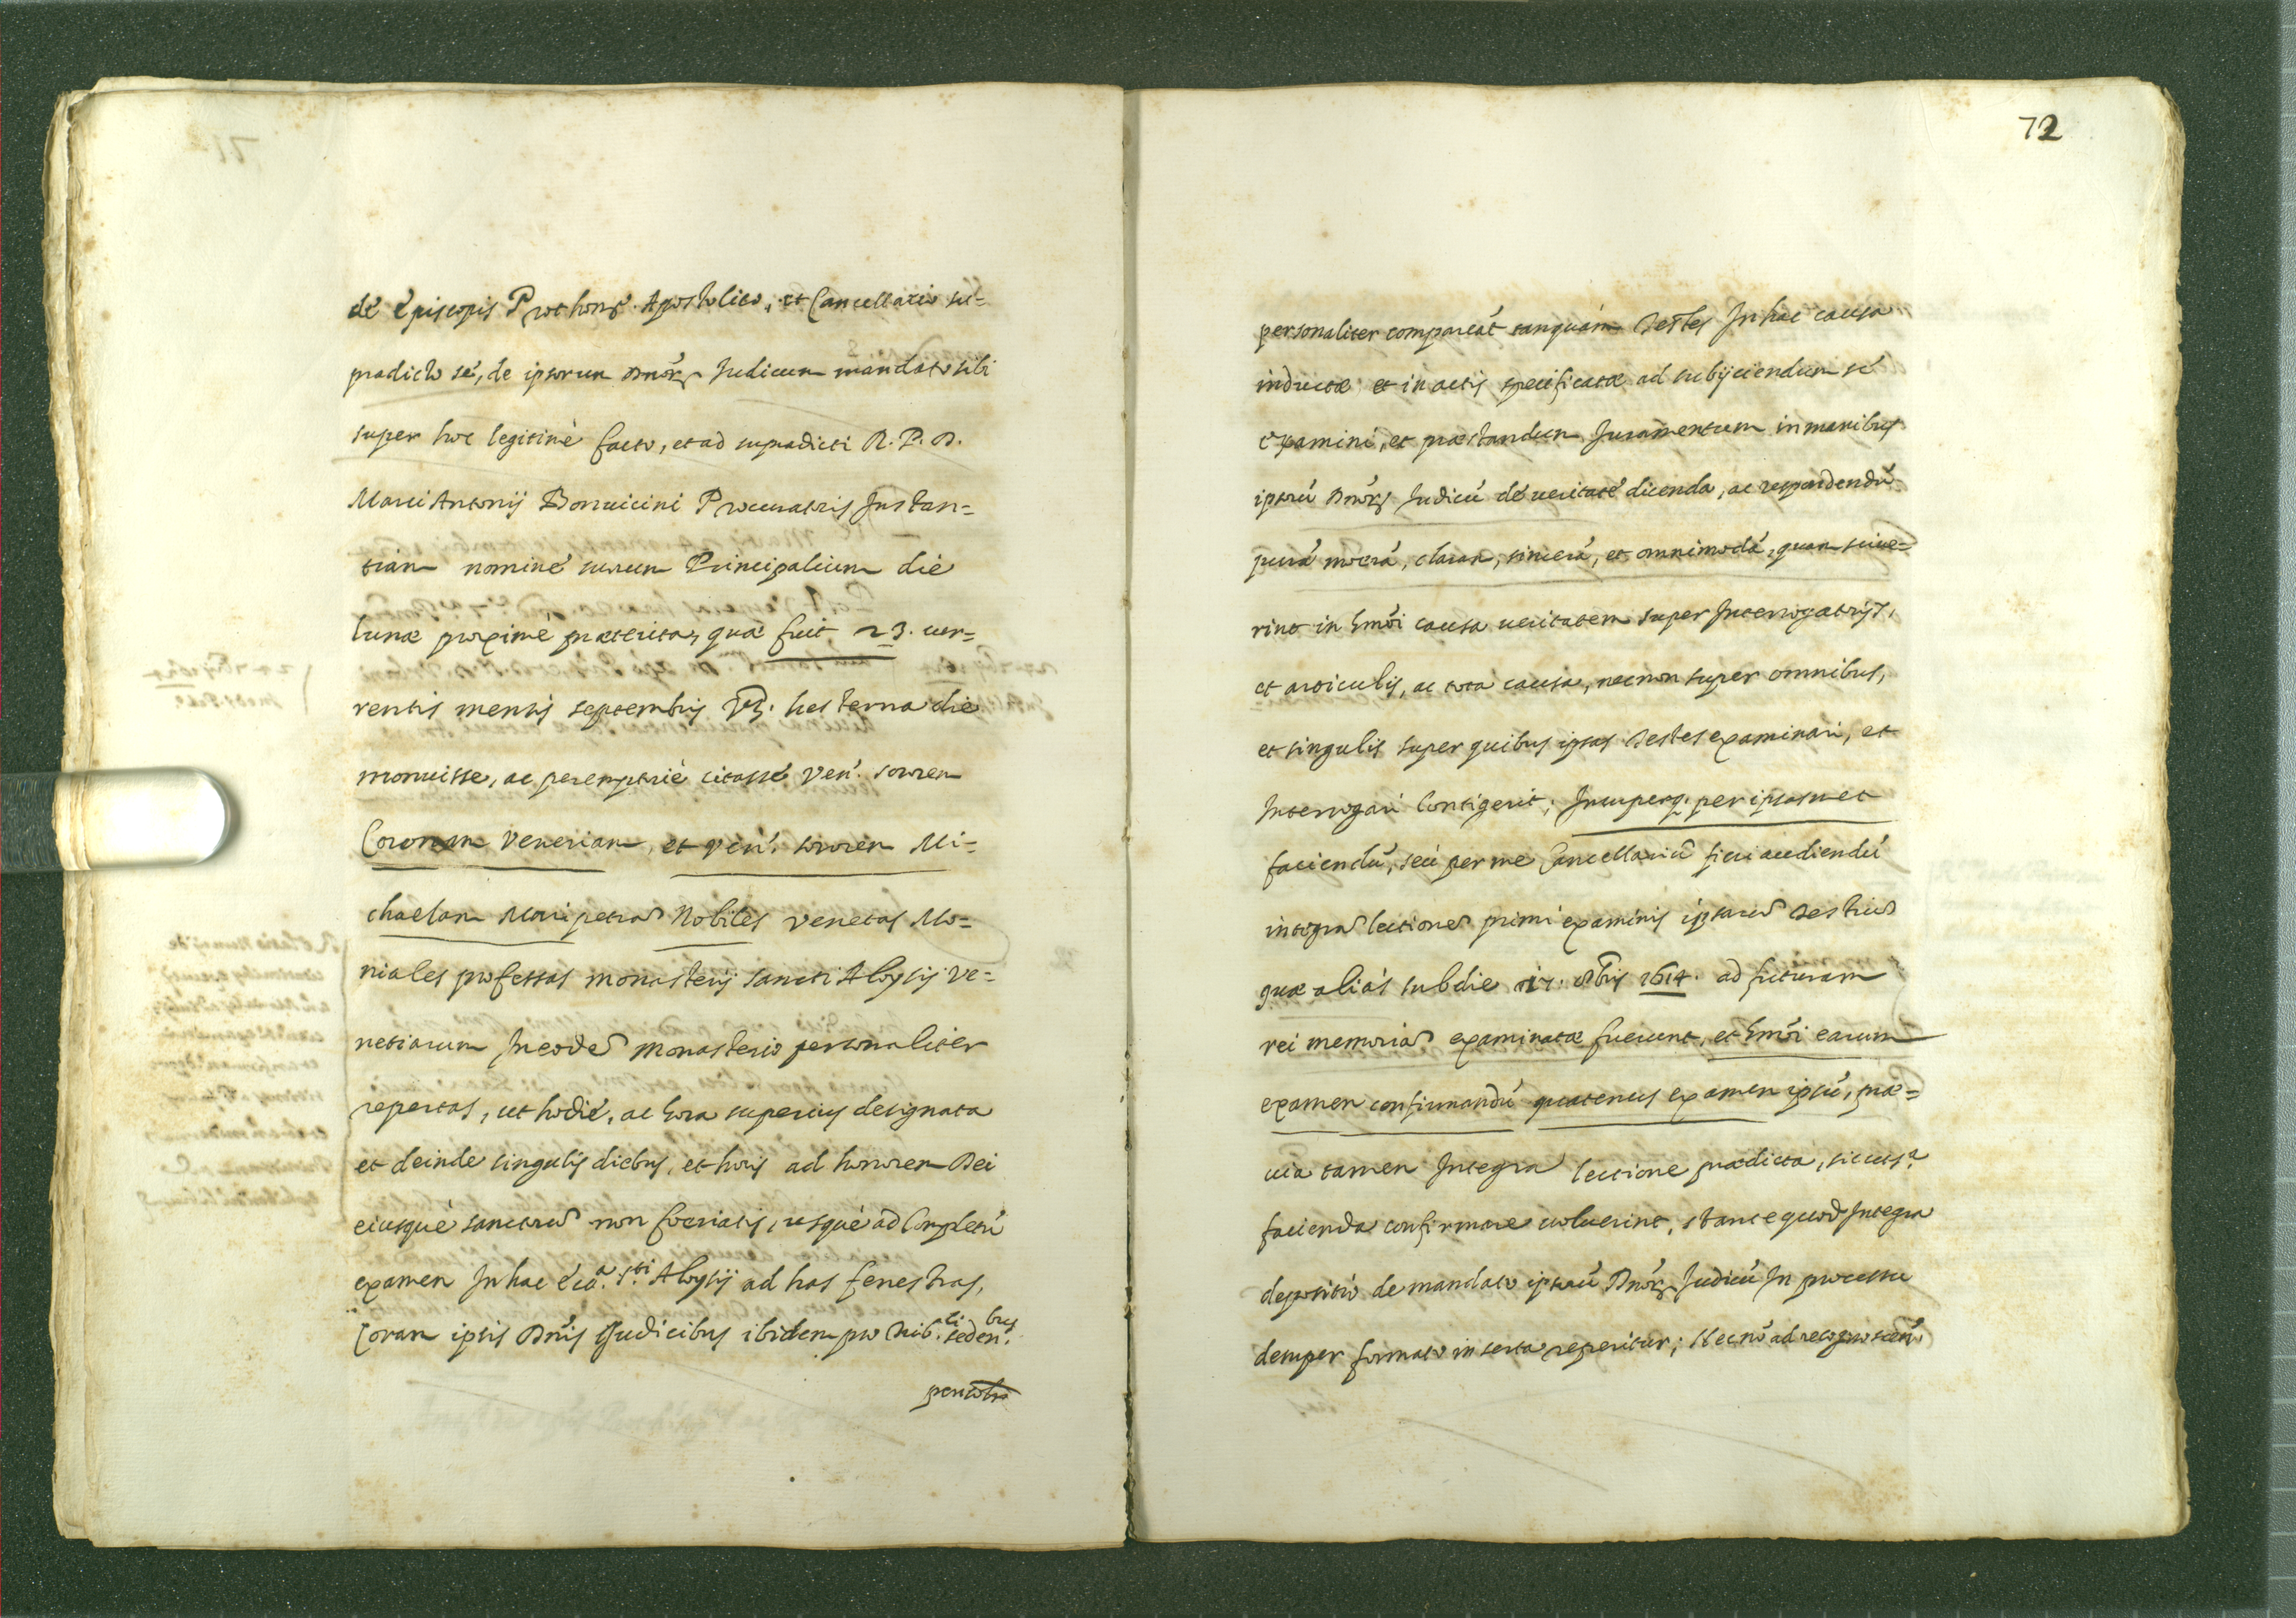 de Episcopis Prothons. Apostolico, et Cancellario su-
pradicto sé, de ipsorum Dnōr. Iudicum mandato sibi
super hoc legitimè facto, et ad supradicti R. P. D.
Marci Antonij Bonuicini Procuratoris Instan=
tiam nominé suorum Principalium dié
lunæ proximè præterita, quæ fuit 23. cur=
rentis mensis septembris vz. hesterna dié
monuisse, ac peremptoriè citassé Ven. sororem
Coronam Veneriam, et Ven. sororem Mi=
chaelam Maripetra Nobiles Venetas Mo=
niales professas monasterij sancti Aloysij Ve=
netiarum In eodē monasterio personaliter
repertas, ut hodié, ac hora superius designata
et deinde singulis diebus, et horis ad honorem Dei
eiusqué sanctorū non foeriatis, usqué ad Completū
examen In hac ecca. Sti. Aloysij ad has fenestras,
Coram ipsis Dnīs Iudicibus ibidem pro Tribli. sedenbus.
personlr
72
personaliter compareāt tanquám Testes In hac causa
inductæ et in actis specificatæ ad subijciendum sé
examini, et præstandum Iuramentum in manibus
ipsorū Dnōr. Iudicū dé ueritaté dicenda, ac respondendū
purā meerā, claram, sincerā, et omnimodā, quam sciue=
rint in hmōi causa ueritatem super Interrogatorijs,
et articulis, ac tota causa, necnon super omnibus,
et singulis super quibus ipsas Testes examinari, et
Interrogari Contigerit; Insuperq. per ipsasmet
faciendū, seù per me Cancellariū fieri audiendū
integrā lectionē primi examinis ipsarū Testiū
quæ aliàs sub die 17. 8bris 1614. ad futuram
rei memoriā examinatæ fuerunt, et hmōi earum
examen confirmandū quatenus examen ipsū, præ=
uia tamen Integra lectione prædicta, sicut sa.
facienda confirmare uoluerint, stante quod Integra
depositio de mandato ipsorū Dnōr. Iudicū In processu
demper formato inserta reperitur; Necnō ad recognoscen.